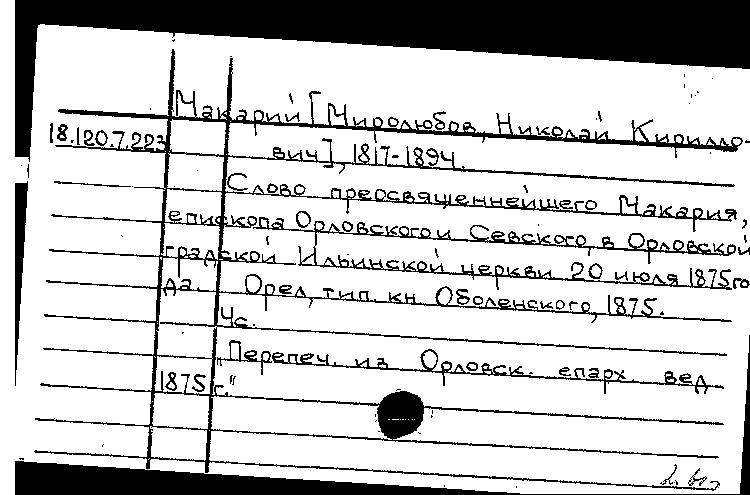 Макарий [Миролюбов, Николай Кирилло-
18.120.7.223 вич], 1817-1894.
Слово преосвященнейшего Макария,
епископа Орловского и Севского, в Орловской
градской Ильинской церкви 20 июля 1875 го
да. Орел, тип. кн. Оболенского, 1875.
4с.
"Перепеч. из Орловск. епарх. вед
1875 г."